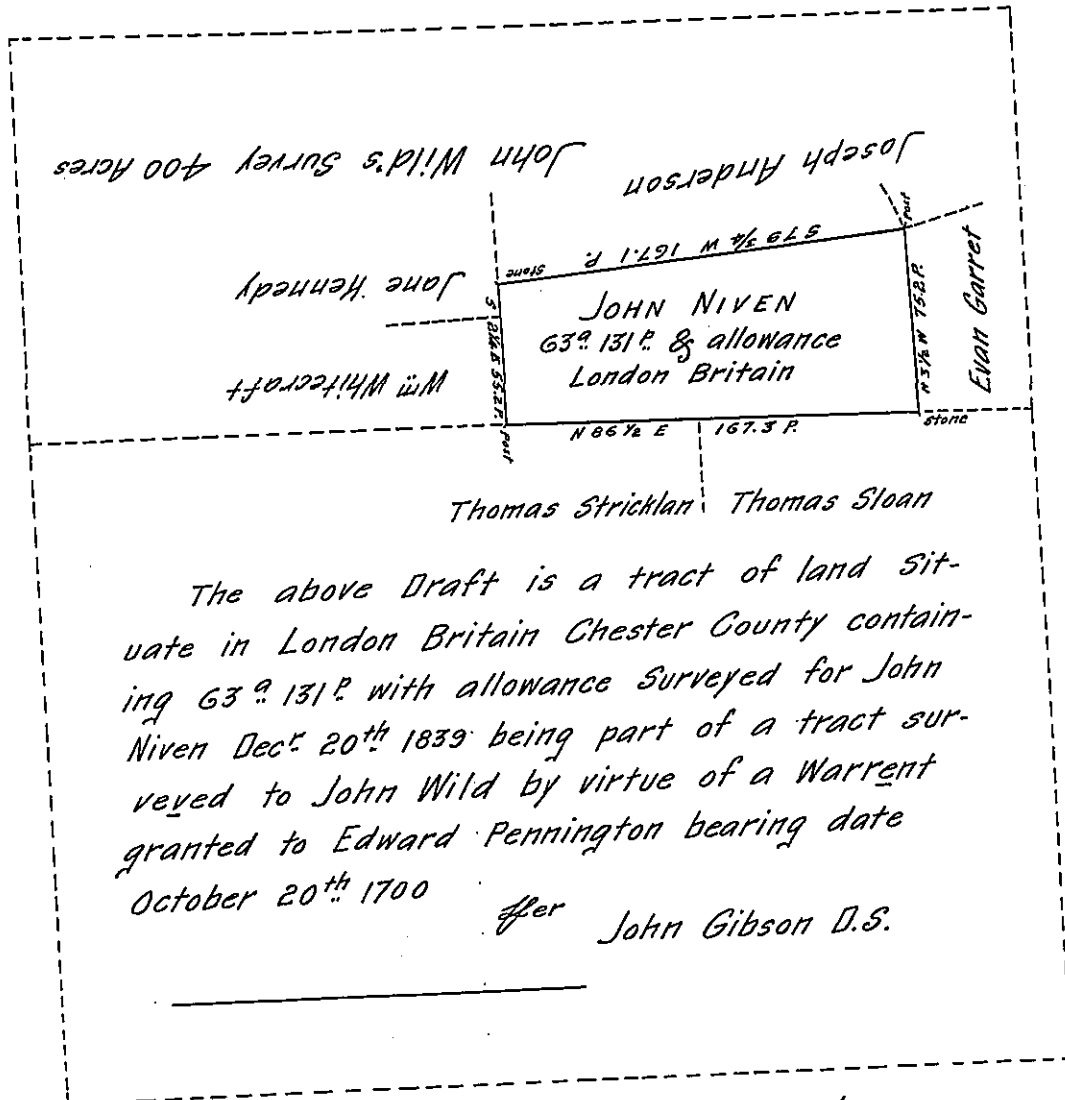 John Wild's Survey 400 Acres
Joseph Anderson
Jane Kennedy
Wm Whitecraft
Evan Garret
S 79 3/4 W 167.1 P.
Stone
Post
N 3 1/2 W 75.2 P.
55.2 P.
Post
N 86 1/2 E 167.3 P.
Stone
JOHN NIVEN
63a 131P. & allowance
London Britain
Thomas Stricklan Thomas Sloan
The above Draft is a tract of land Sit-
uate in London Britain Chester County contain-
ing 63a 131P with allowance Surveyed for John
Niven Decr. 20th 1839 being part of a tract sur-
veyed to John Wild by virtue of a Warrent
granted to Edward Pennington bearing date
October 20th 1700
John Gibson D.S.